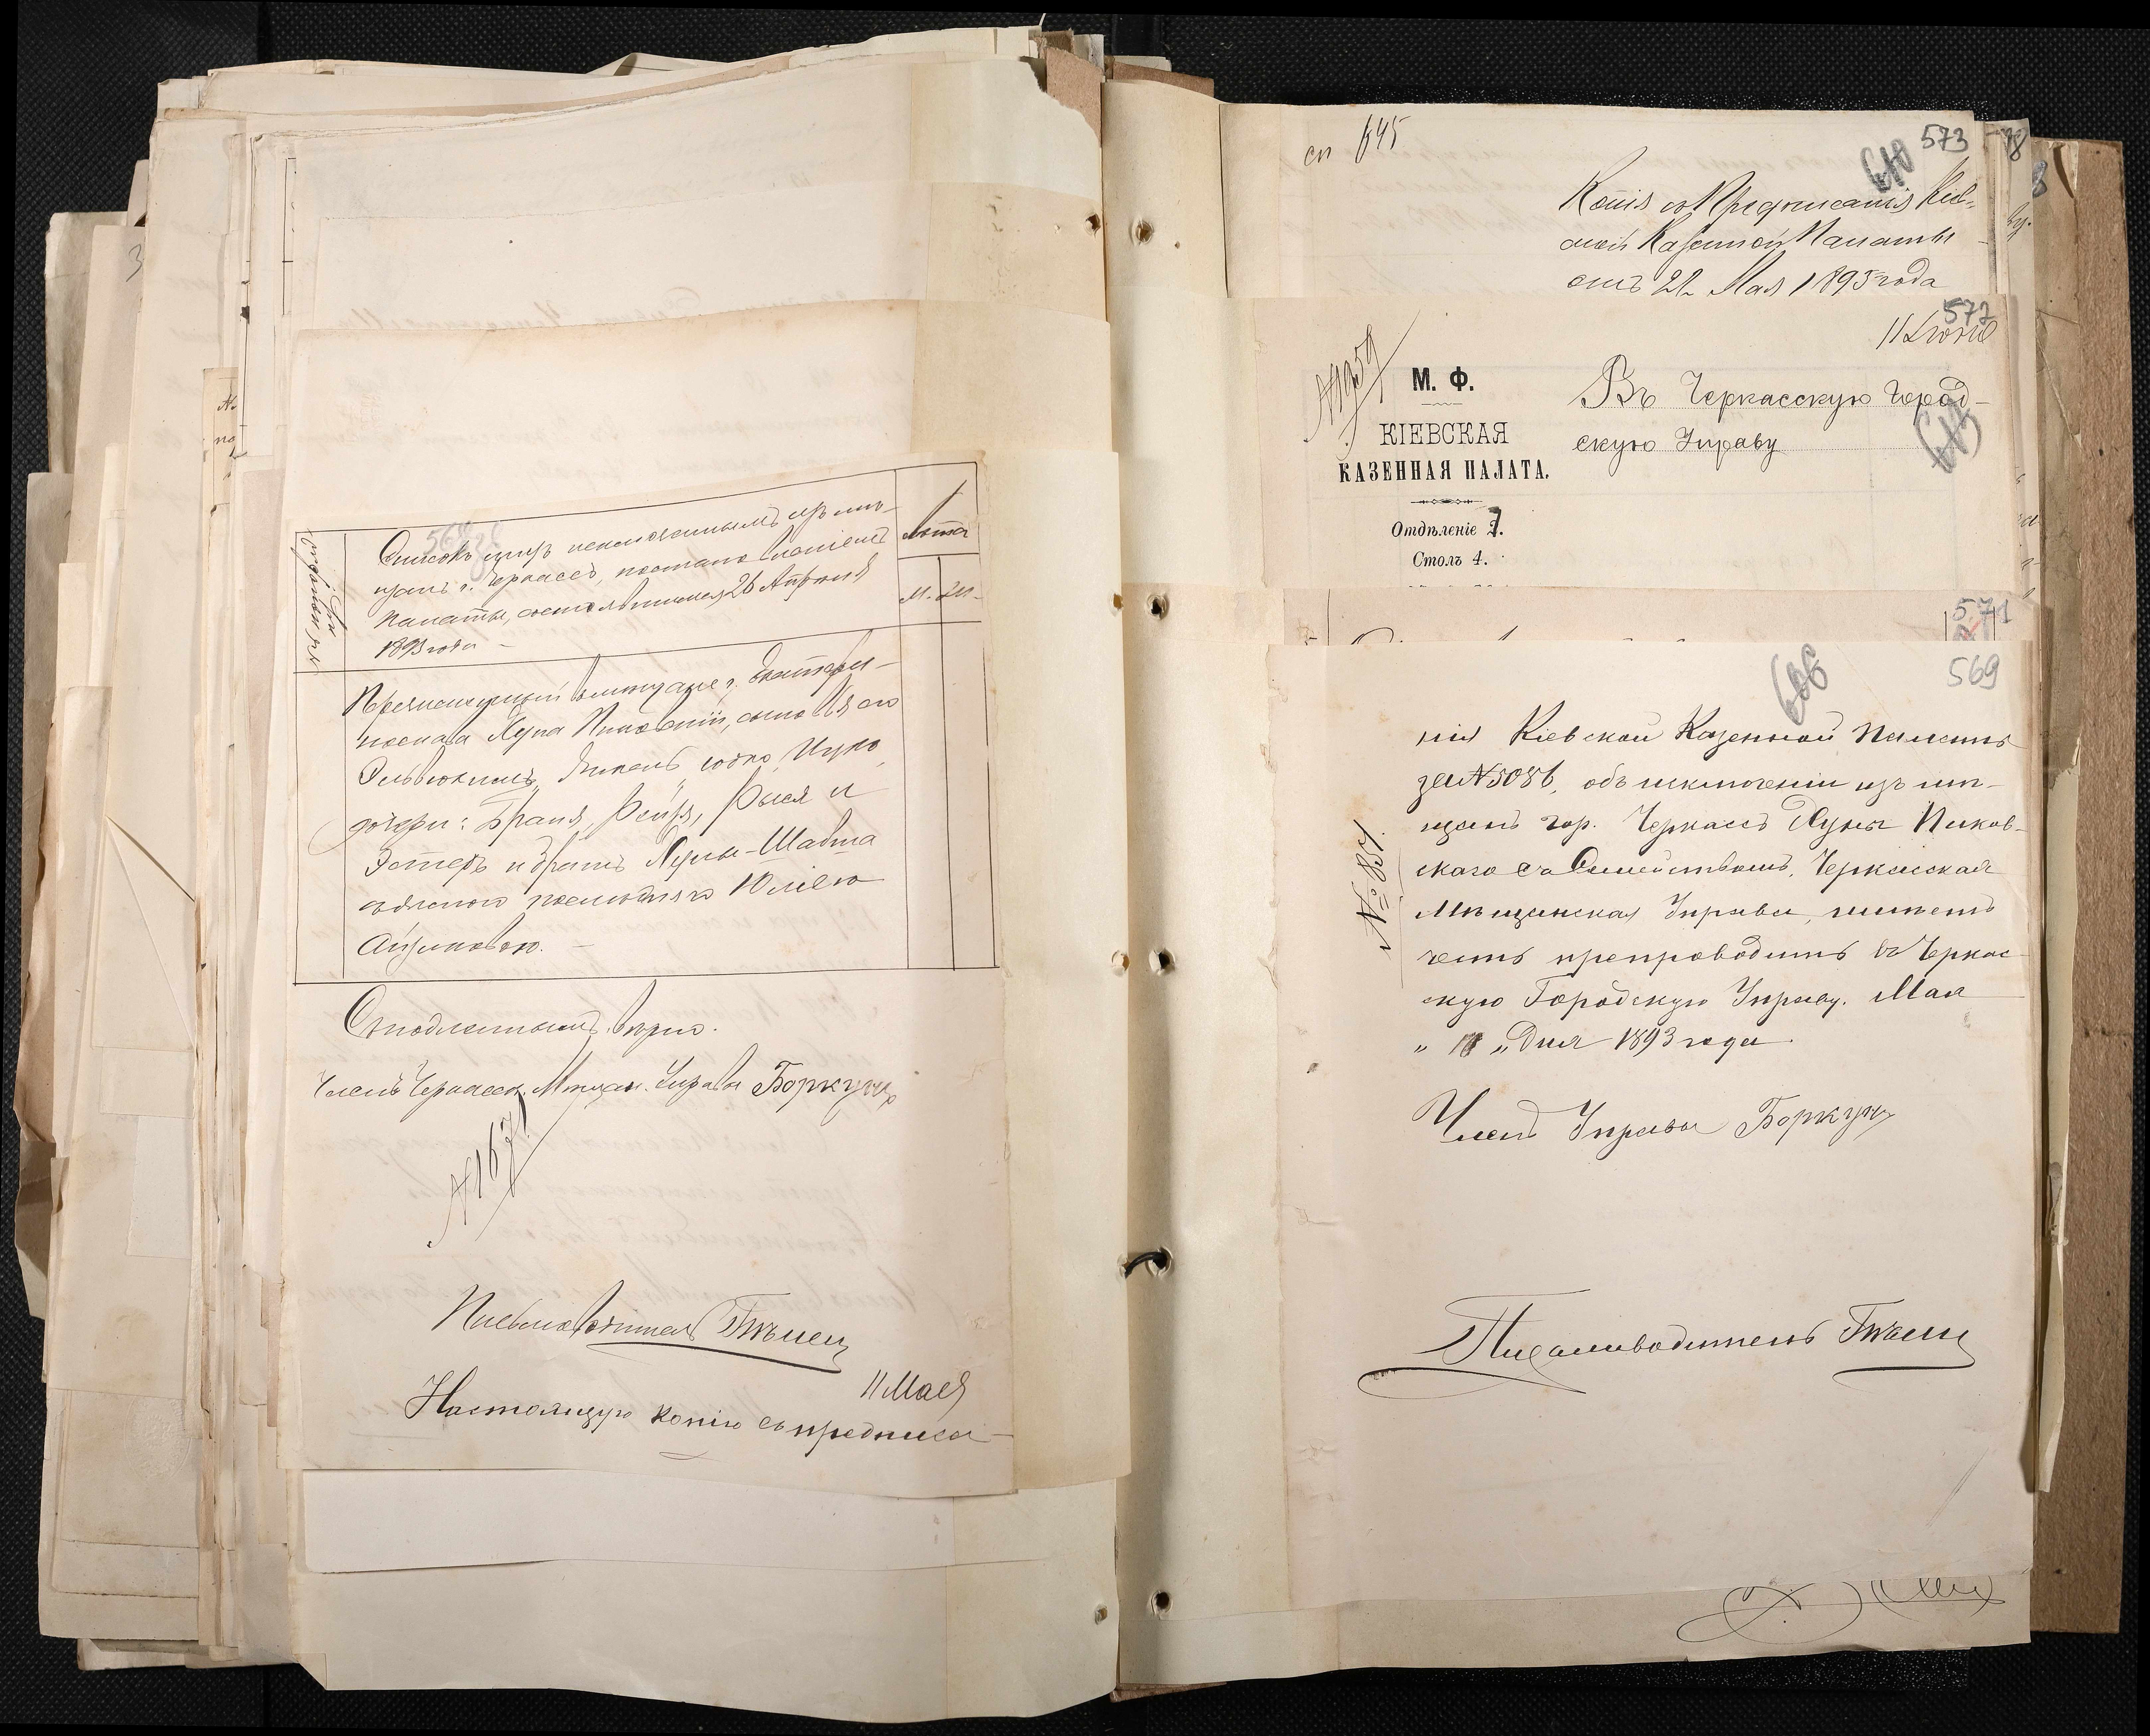 Списокъ лицъ исключеннымъ изъ мѣ-
щанъ г. Черкассъ, постановленіемъ
Палаты, состоявшимся 26 Апрѣля
1893 года
Лѣта
М.
Перечисленный въ мѣщане г. Екатери-
Пиковскій, сыновья его
дочери: Браня, Рейзя, Рыся и
Эстеръ и братъ
Юлією
Съ подлиннымъ вѣрно.
Членъ Черкасск. Мѣщан. Управы Боркунъ
№ 1671
Письмоводитель
11 Мая
Настоящую копію съ предписа-
сп 645
573
610
Копія съ Предписанія Кіев-
ской Казенной Палаты
отъ 22 Мая 1895 года
572
11 Іюня
№ 1959
М. Ф.
КІЕВСКАЯ
КАЗЕННАЯ ПАЛАТА.
Отдѣленіе 1.
Столъ 4.
Въ Черкасскую Город-
скую Управу
571
569
608
нія Кіевской Казенной Палаты
за № 5086, объ исключеніи изъ мѣ-
щанъ гор. Черкассъ Дуны Пиков-
скаго съ Семействомъ, Черкасская
Мѣщанская Управа, имѣетъ
честь препроводить въ Черкас-
скую Городскую Управу. Мая
" " Дня 1893 года.
№ 831.
Членъ Управы Боркунъ
Письмоводитель